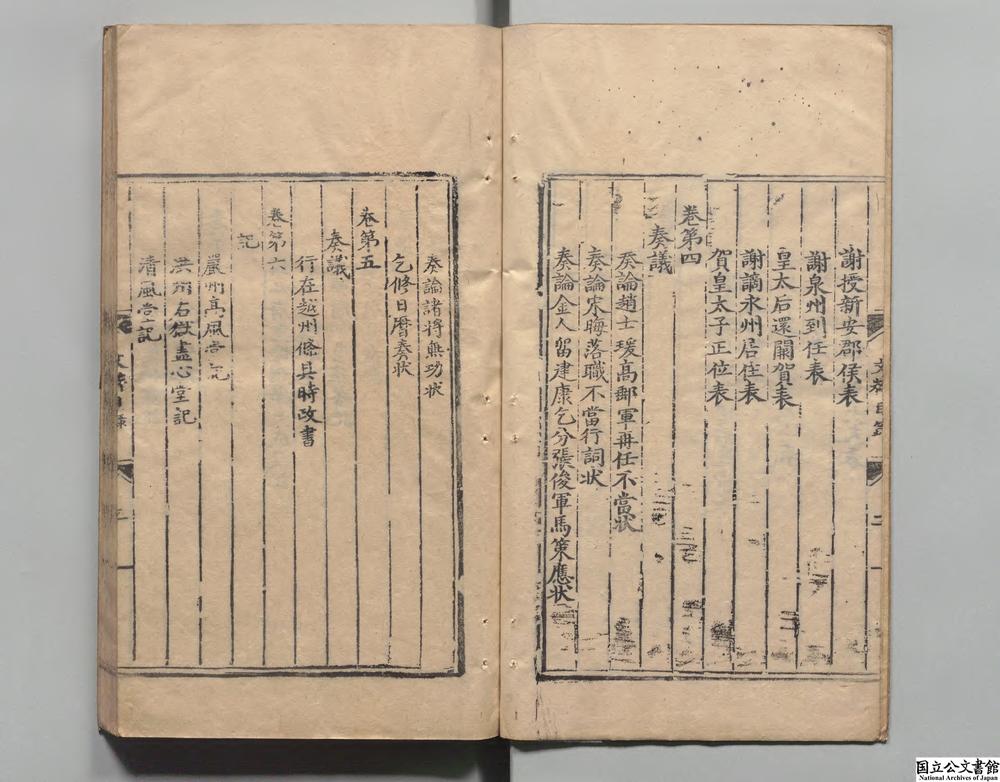 謝授新安郡侯表
謝泉州到任表
皇太后還闕賀表
謝謫永州居住表
賀皇太子正位表
卷第四
奏議
奏論趙士瑗高郵軍再任不當状
奏論宋晦落職不當行詞状
奏論金人留建康乞分張俊軍馬策應状
奏論諸将無功状
乞修日曆奏状
卷第五
奏議
行在越州條具時政書
卷第六
記
嚴州高風堂記
洪州右獄盡心堂記
清風堂記
国立公文書館
National Archives of Japan